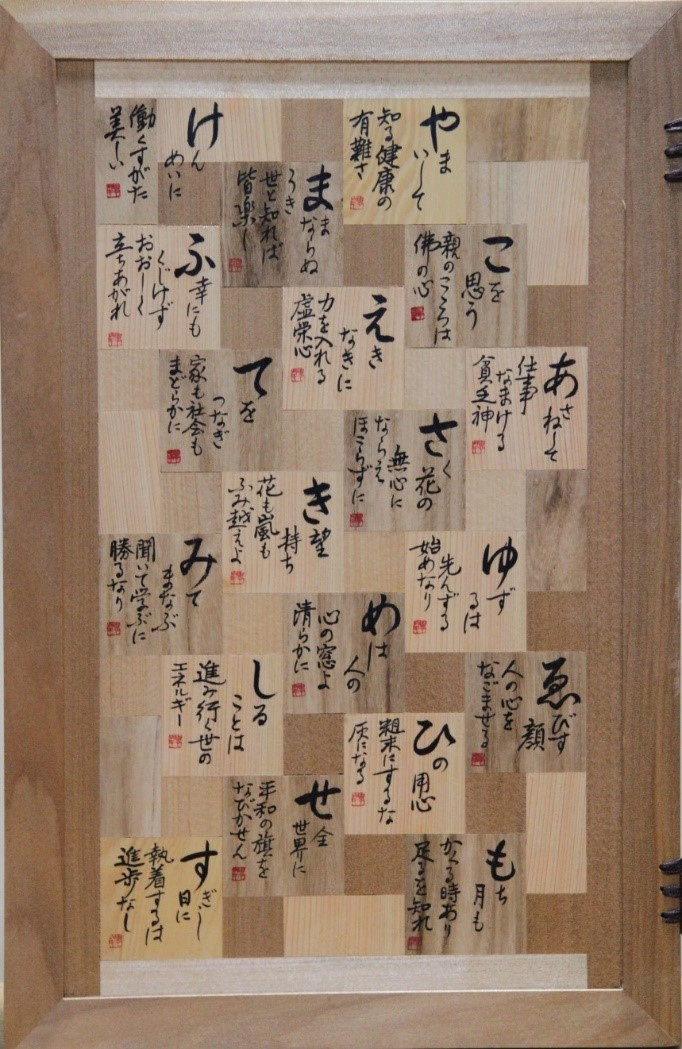 やま
いして
知る健康の
有難さ
ままならぬ
うき
世と知れば
皆楽し
けん
めいに
働くすがた
美しい
ふ幸にも
くじけず
おおしく
立ちあがれ
こを
思う
親のこころは
佛の心
えき
なきに
力を入れる
虚栄心
てを
つなぎ
家も社会も
まどらかに
あさねして
仕事
なまける
貧乏神
さく花の
無心に
ならえ
ほこらずに
き望
持ち
花も嵐も
ふみ越えよ
ゆず
るは
先んずる
始めなり
めは
人の
心の窓よ
清らかに
みて
まなぶ
聞いて学ぶに
勝るなり
しる
ことは
進み行く世の
エネルギー
ゑびす
顔
人の心を
なごませる
ひの
用心
粗末にするな
灰になる
もち
月も
かくる時あり
尽るを知れ
せ全
世界に
平和の旗を
なびかせん
すぎし
日に
執着するは
進歩なし